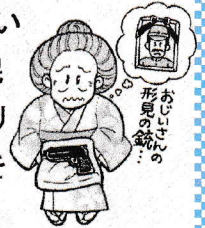 おじいさんの
形見の銃…
い
り